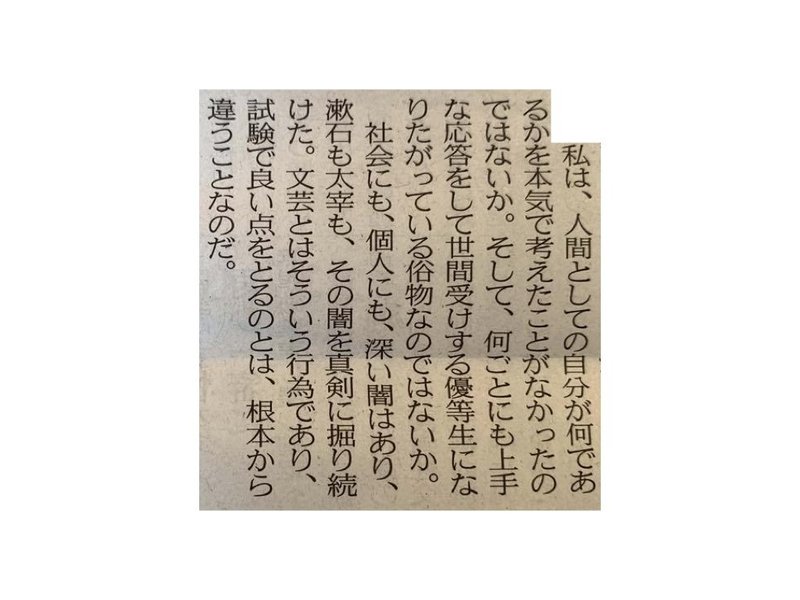 私は、人間としての自分が何であ
るかを本気で考えたことがなかったの
ではないか。そして、何ごとにも上手
な応答をして世間受けする優等生にな
りたがっている俗物なのではないか。
社会にも、個人にも、深い闇はあり、
漱石も太宰も、その闇を真剣に掘り続
けた。文芸とはそういう行為であり、
試験で良い点をとるのとは、根本から
違うことなのだ。